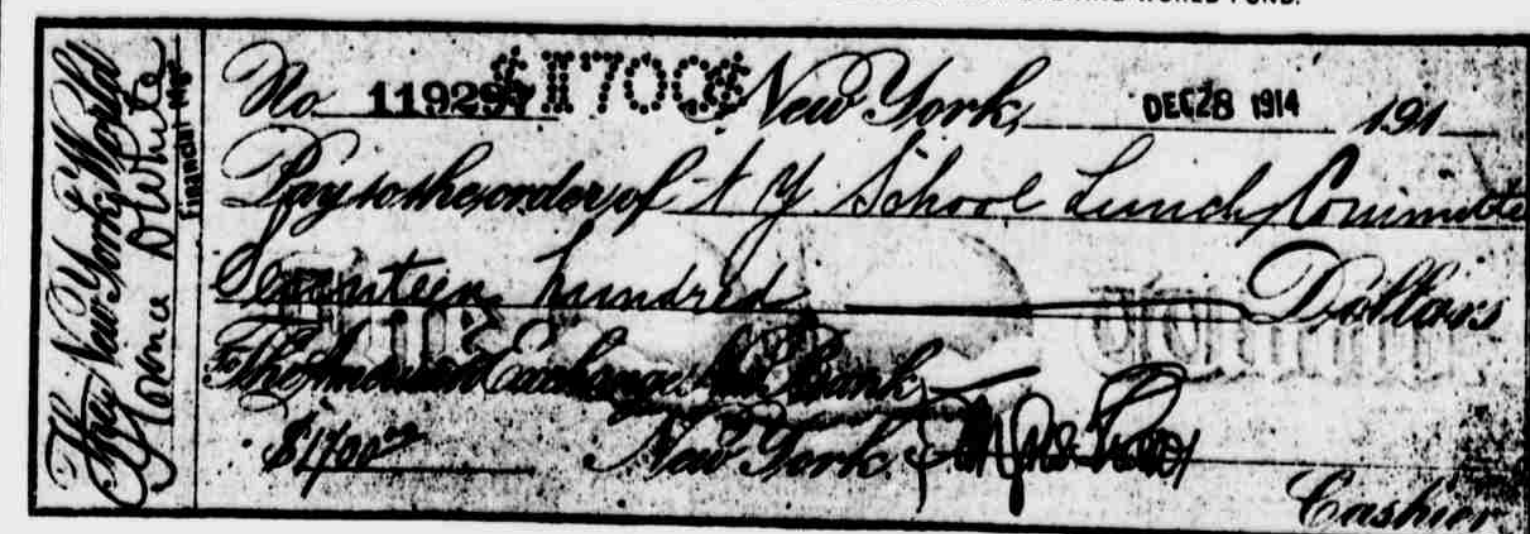 WORLD FUND.
The New York World
Florence D White
Financial Mgr
No. 119297 $1700$ New York, DEC 28 1914 191
Pay to the order of N Y School Lunch Committee
Seventeen hundred Dollars
The American Exchange Nat Bank
$1700.00 New York
Cashier.